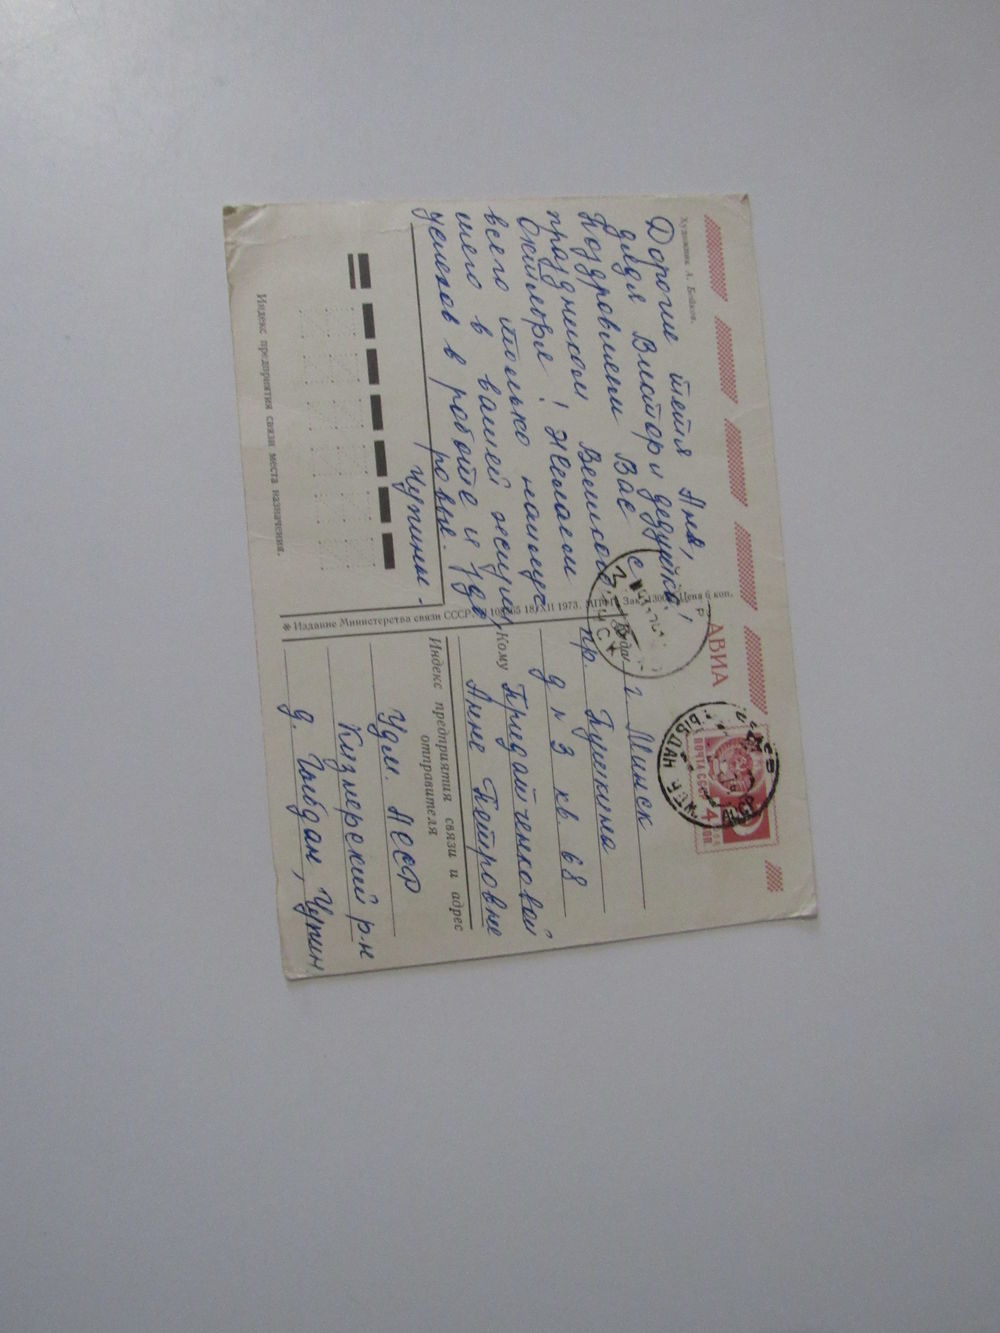 Художник А. Бойков.
Дорогие тётя Аня,
дядя Виктор и дедушка!
Поздравляем Вас с
праздником Великого
Октября! Желаем
всего только наилуч
шего в вашей жизни,
успехов в работе и здо
ровье.
Чупины.
Индекс предприятия связи места назначения.
* Издание Министерства связи СССР. 18/XII 1973. Зак. Цена 6 коп.
АВИА
ПОЧТА СССР 4 КОП
Куда г. Минск
пр. Пушкина
д № 3 кв 68
Кому Придатченковой
Анне Петровне
Индекс предприятия связи и адрес
отправителя
Удм. АССР
Кизнерский р-н
д. Гыбдан, Чупин